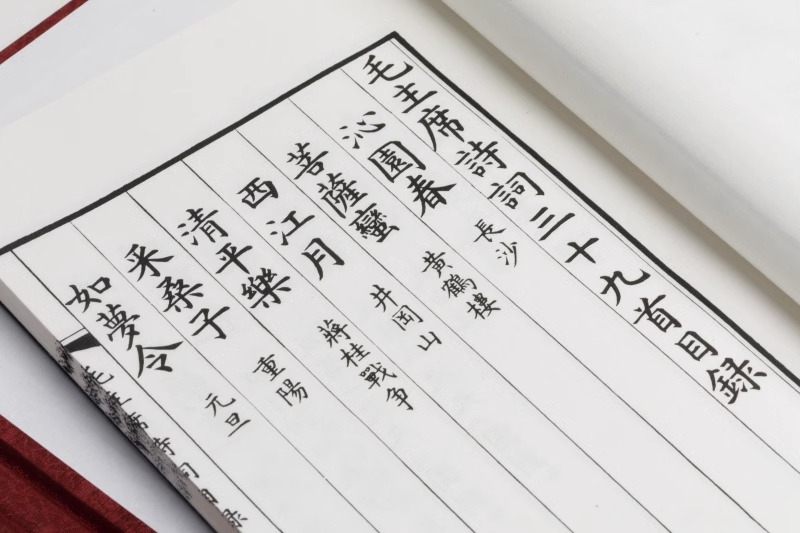 毛主席詩詞三十九首目録
沁園春 長沙
菩薩蠻 黃鶴樓
西江月 井岡山
清平樂 蔣桂戰争
采桑子 重陽
如夢令 元旦
毛主席詩詞目録